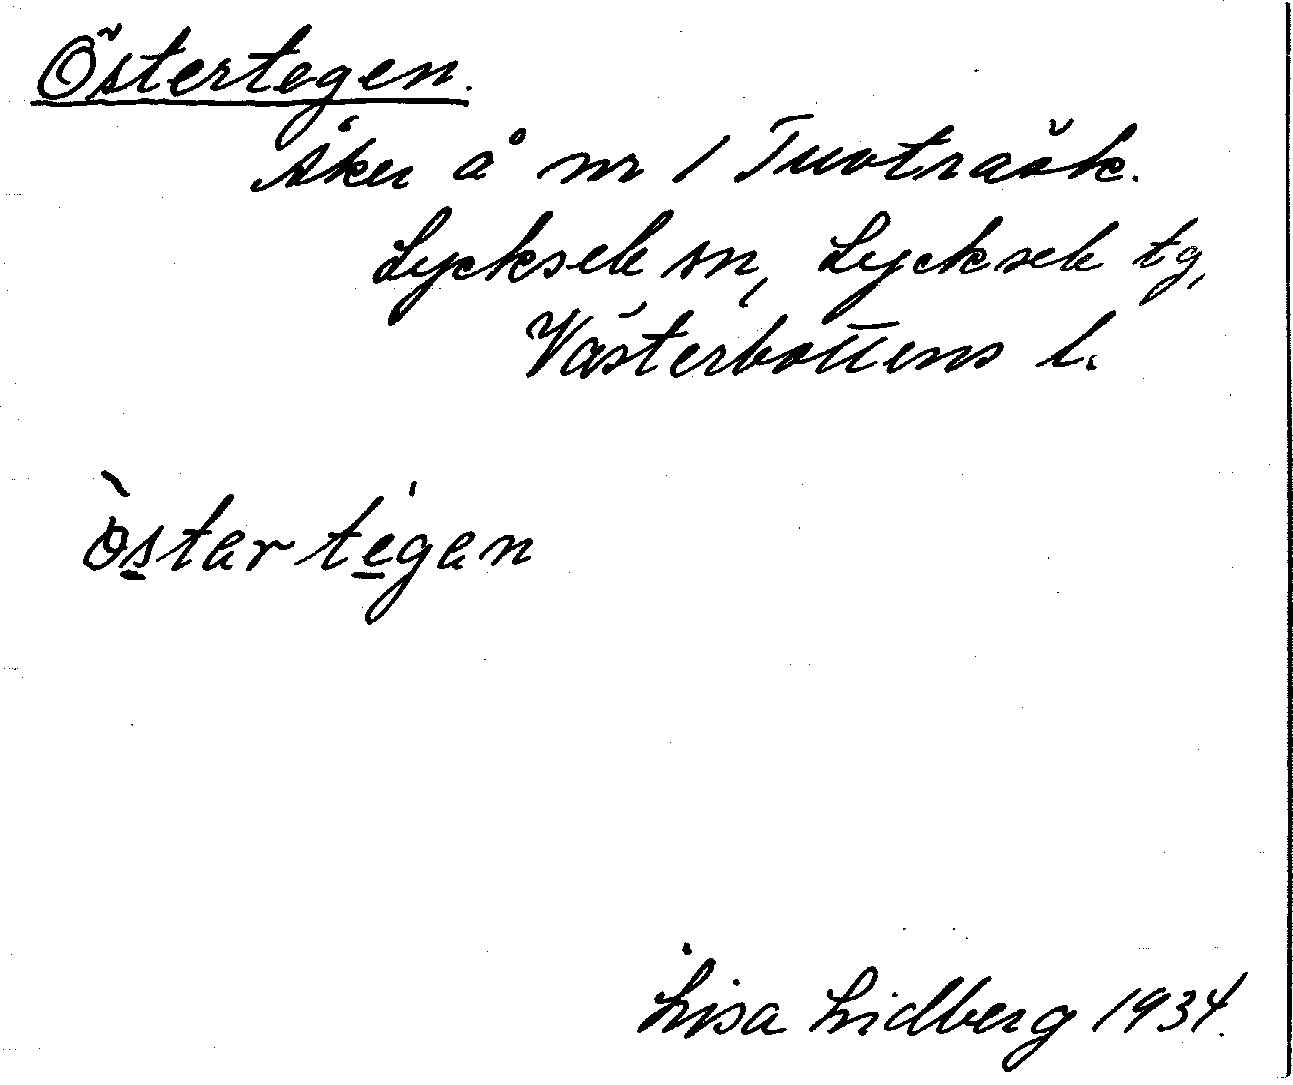 Östertegen.
Åker å nr 1 Tuvträsk.
Lycksele sn, Lycksele tg,
Västerbottens l.
òstar tégan
Lisa Lidberg 1934.